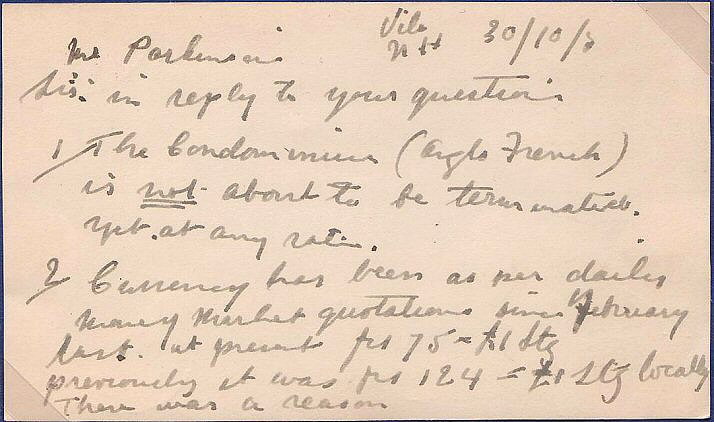 Vila
Mr Parkinson N H 30/10/3
Sir: in reply to your questions
1/ The Condominium (Anglo French)
is not about to be terminated.
yet. at any rate.
2/ Currency has been as per daily
money market quotations since February
last. at present frs 75 = £1 Stg
previously it was frs 124 = £1 Stg locally
There was a reason